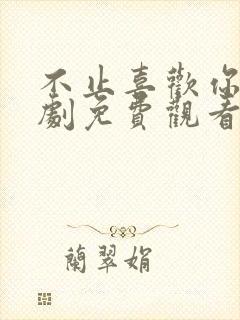 不止喜歡你
劇免費觀看
蘭翠娟